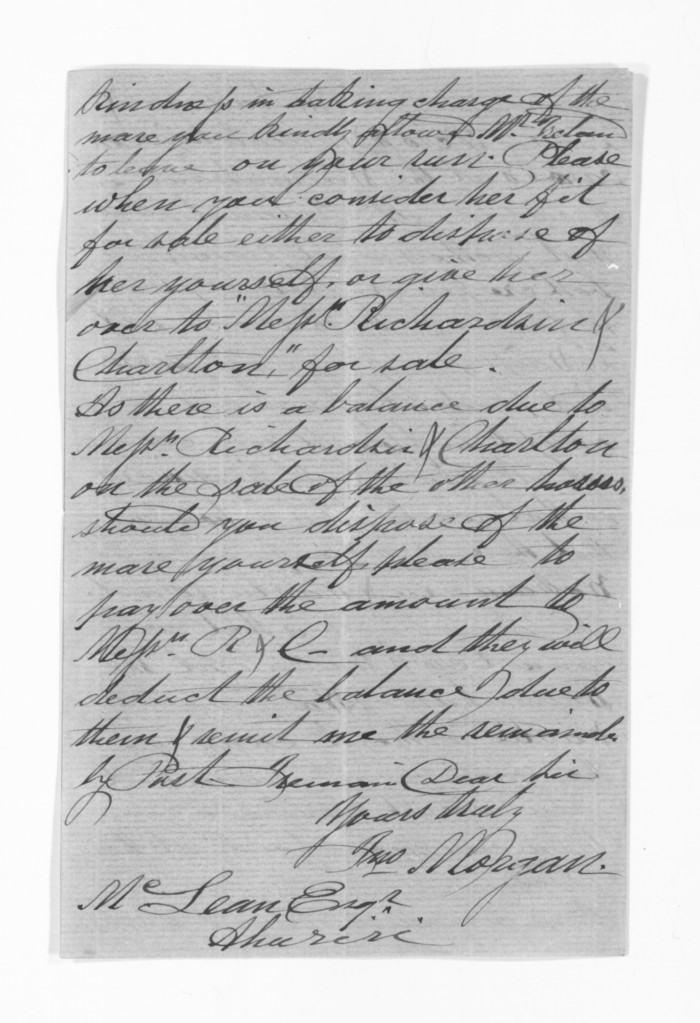 kindness in taking charge of the
mare you kindly allowed Mr.
to leave on your run. Please
when you consider her fit
for sale either to dispose of
her yourself, or give her
over to "Messrs. Richardson &
Charlton," for sale.
As there is a balance due to
Messrs. Richardson & Charlton
on the sale of the other horses,
should you dispose of the
mare yourself please to
pay over the amount to
Messrs. R & C — and they will
deduct the balance due to
them & remit me the remainder
by Post. I remain Dear Sir
Yours truly
Jno Morgan.
McLean Esqr
Ahuriri